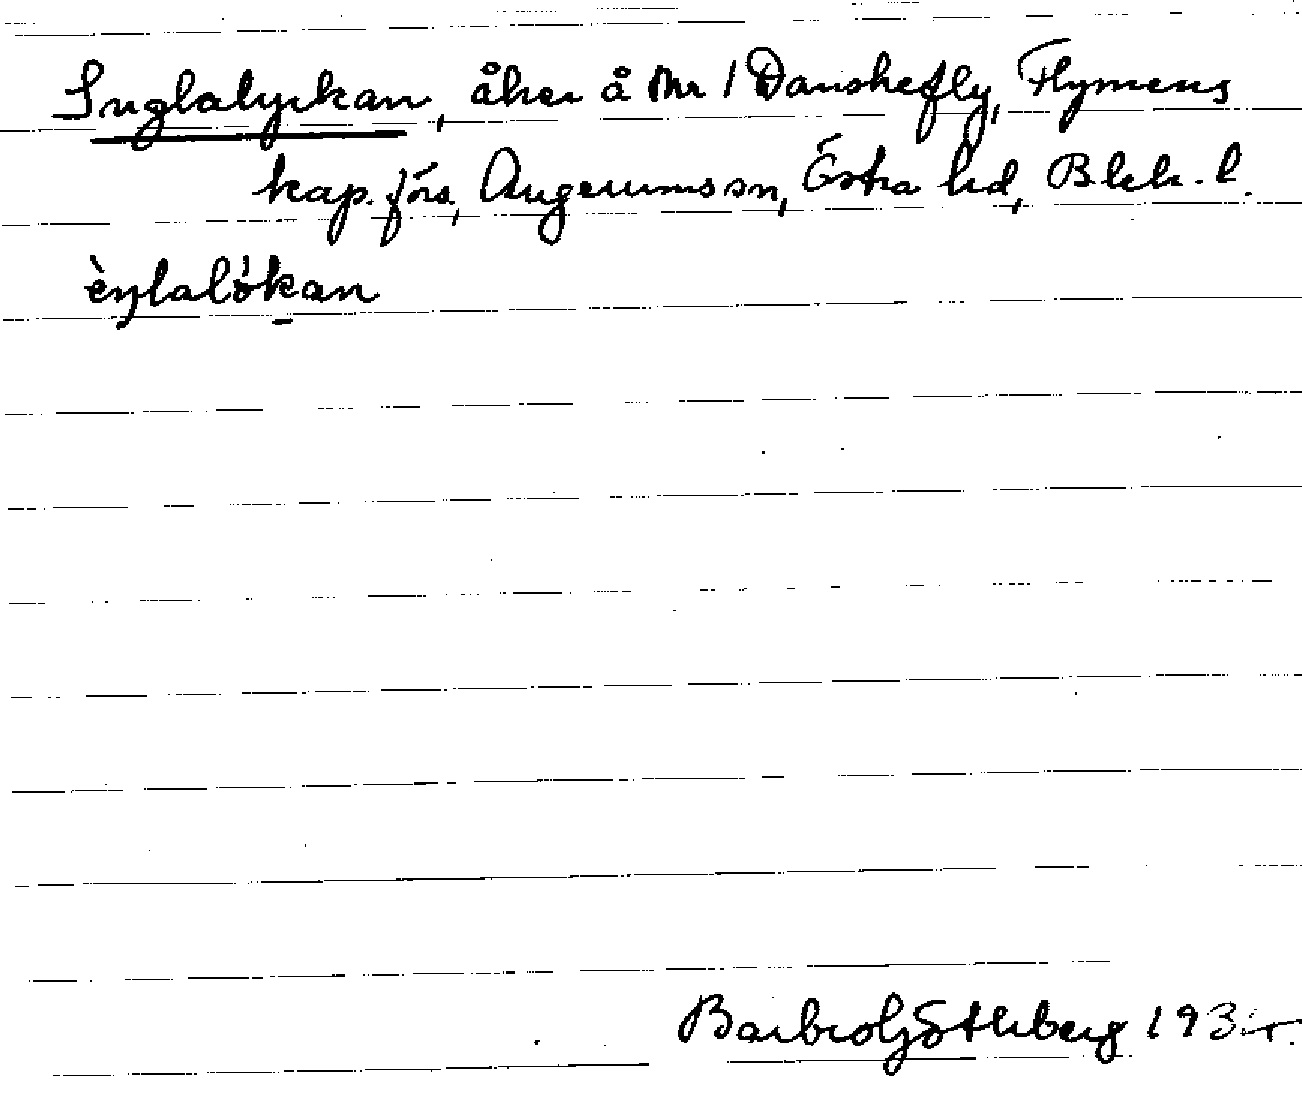 Inglalyckan, åker å Nr 1 Danskefly, Flymens
kap. förs, Augerums sn, Östra hd, Blek. l.
èŋlalỳkan
Barbro Göthberg